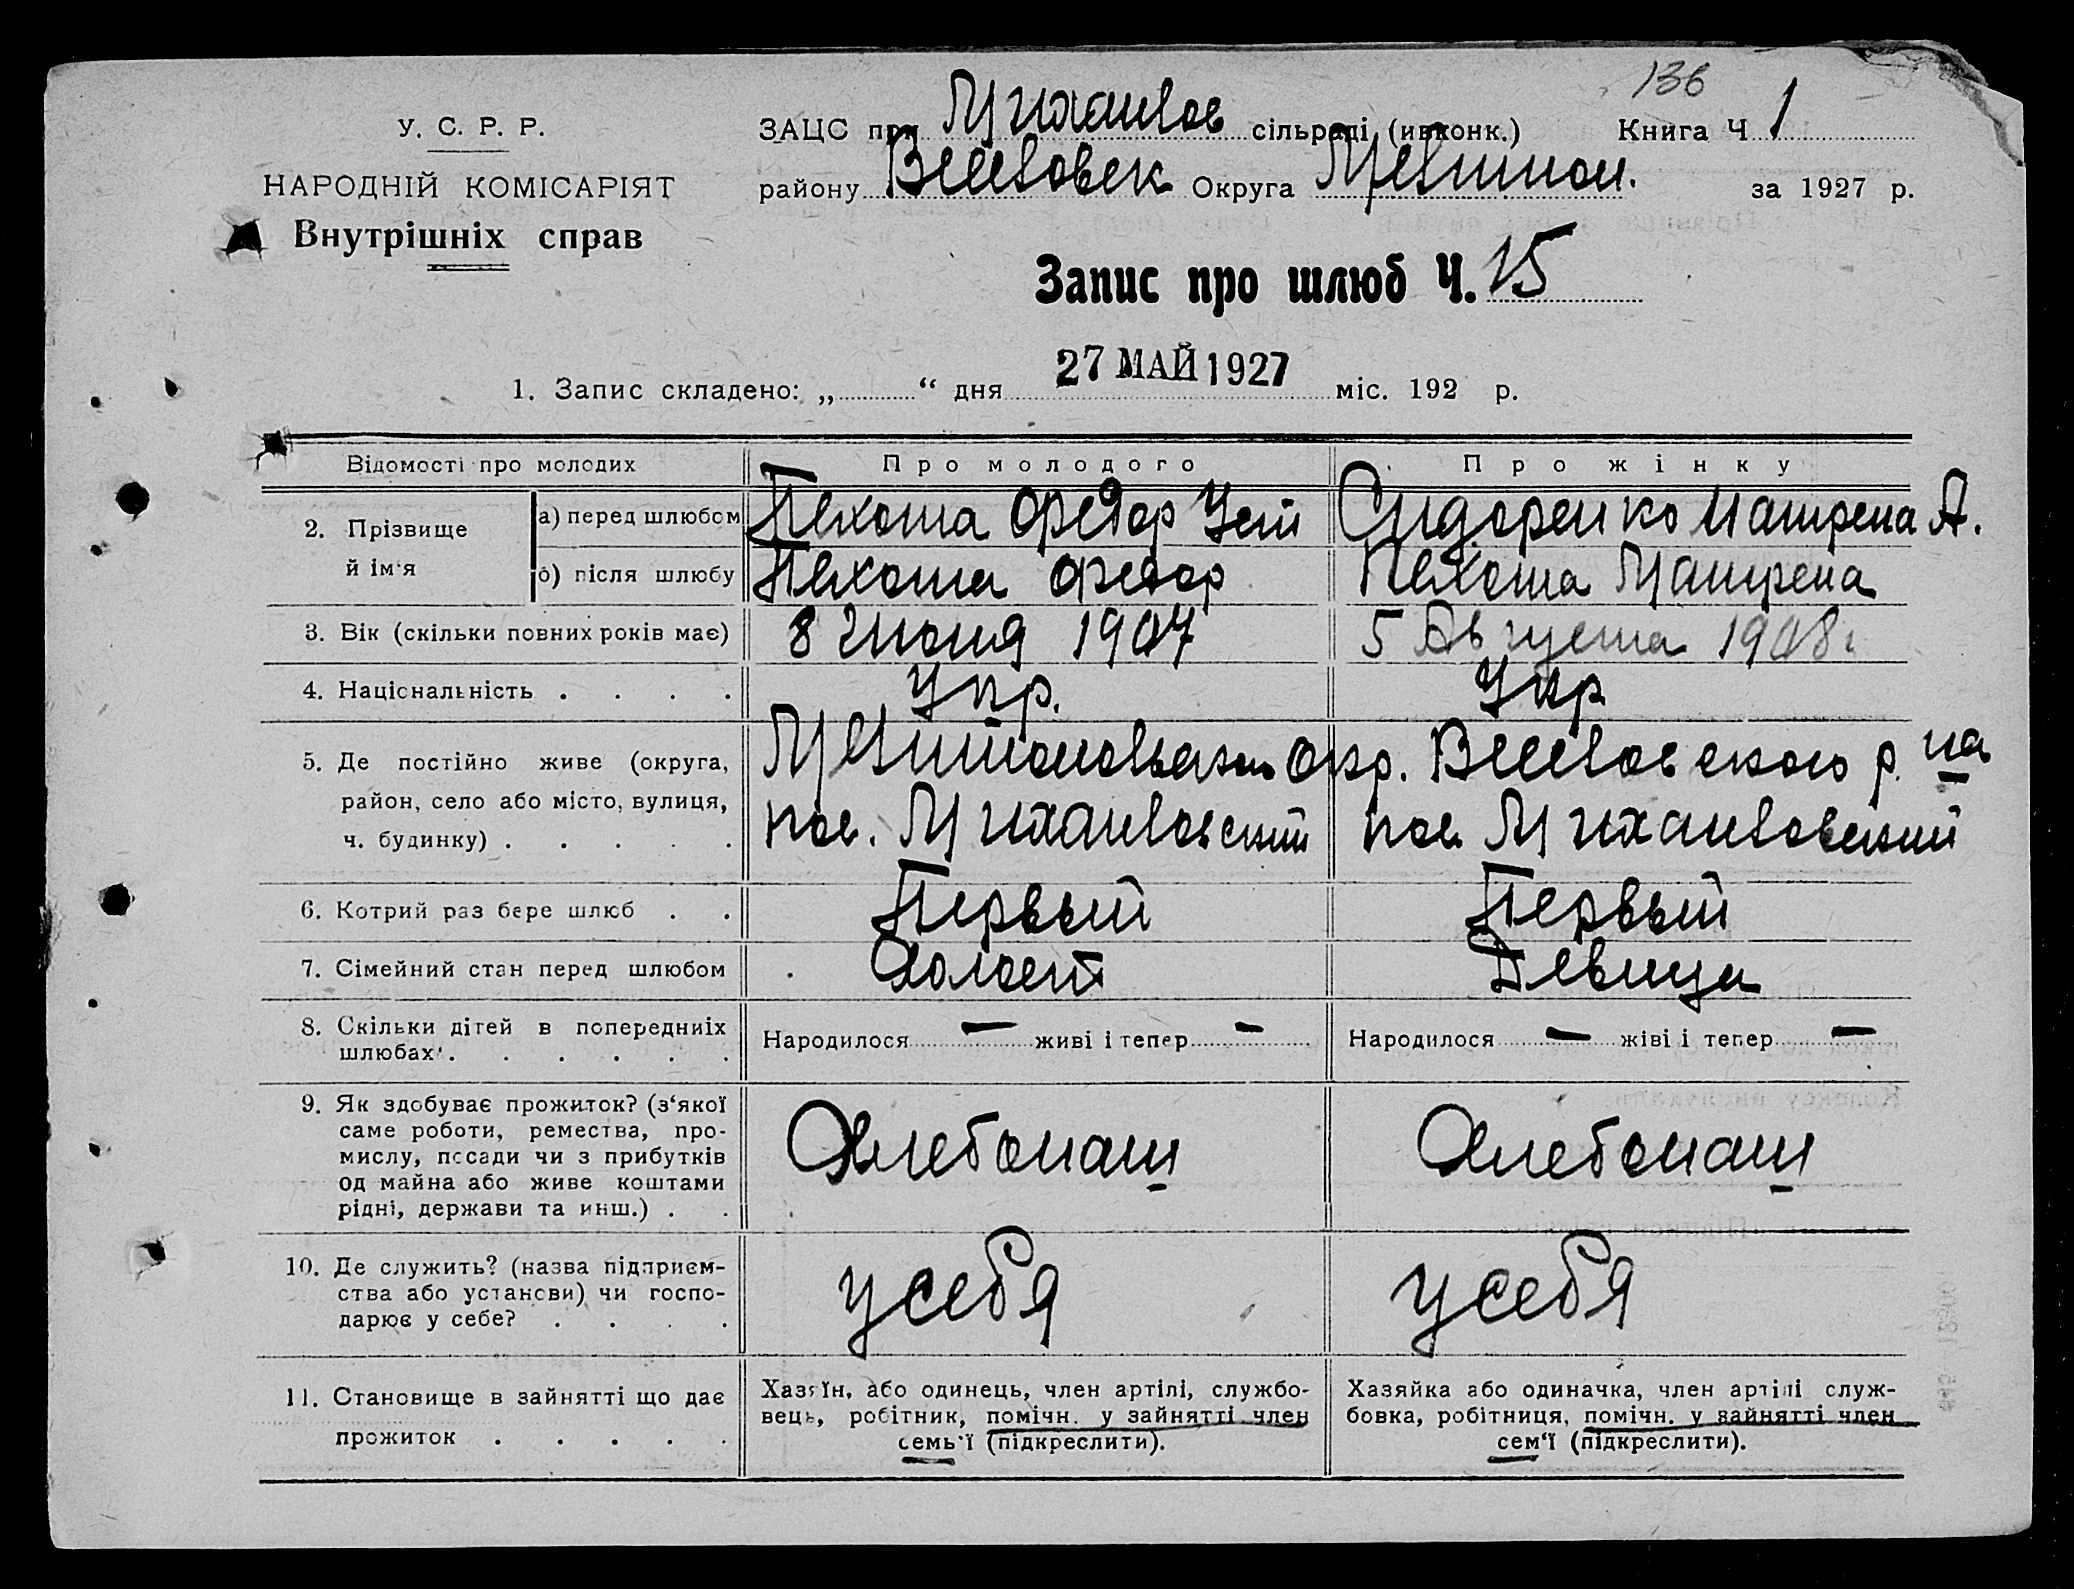 136
У. С. Р. Р.
НАРОДНІЙ КОМІСАРІЯТ
Внутрішніх справ
ЗАЦС при Михайлов сільраді (ивконк.) Книга Ч 1
району Веселовск Округа Мелитоп. за 1927 р.
Запис про шлюб Ч. 15
1. Запис складено: „ “ дня 27 МАЙ 1927 міс. 192 р.
Відомості про молодих Про молодого Про жінку
2. Прізвище й ім‘я
а) перед шлюбом Пехота Федор Сидоренко Матрена А.
б) після шлюбу Пехота Федор Пехота Матрена
3. Вік (скільки повних років має) 8 Июня 1907 5 Августа 1908 г
4. Національність . . . . Укр. Укр
5. Де постійно живе (округа, Мелитопольского окр. Веселовского р. на
район, село або місто, вулиця, пос. Михайловский пос Михайловский
ч. будинку) . . . . .
6. Котрий раз бере шлюб . . Первый Первый
7. Сімейний стан перед шлюбом Холост Девица
8. Скільки дітей в попередниіх Народилося — живі і тепер — Народилося — жіві і тепер —
шлюбах . . . . . .
9. Як здобуває прожиток? (з‘якої
саме роботи, ремества, про-
мислу, посади чи з прибутків Хлебопаш Хлебопаш
од майна або живе коштами
рідні, держави та инш.) . .
10. Де служить? (назва підприєм-
ства або установи) чи госпо- у себя у себя
дарює у себе? . . . .
11. Становище в зайнятті що дає Хазяїн, або одинець, член артілі, службо- Хазяйка або одиначка, член артілі служ-
прожиток . . . . . вець, робітник, помічн. у зайнятті член бовка, робітниця, помічн. у зайнятті член
семь‘ї (підкреслити). сем‘ї (підкреслити).